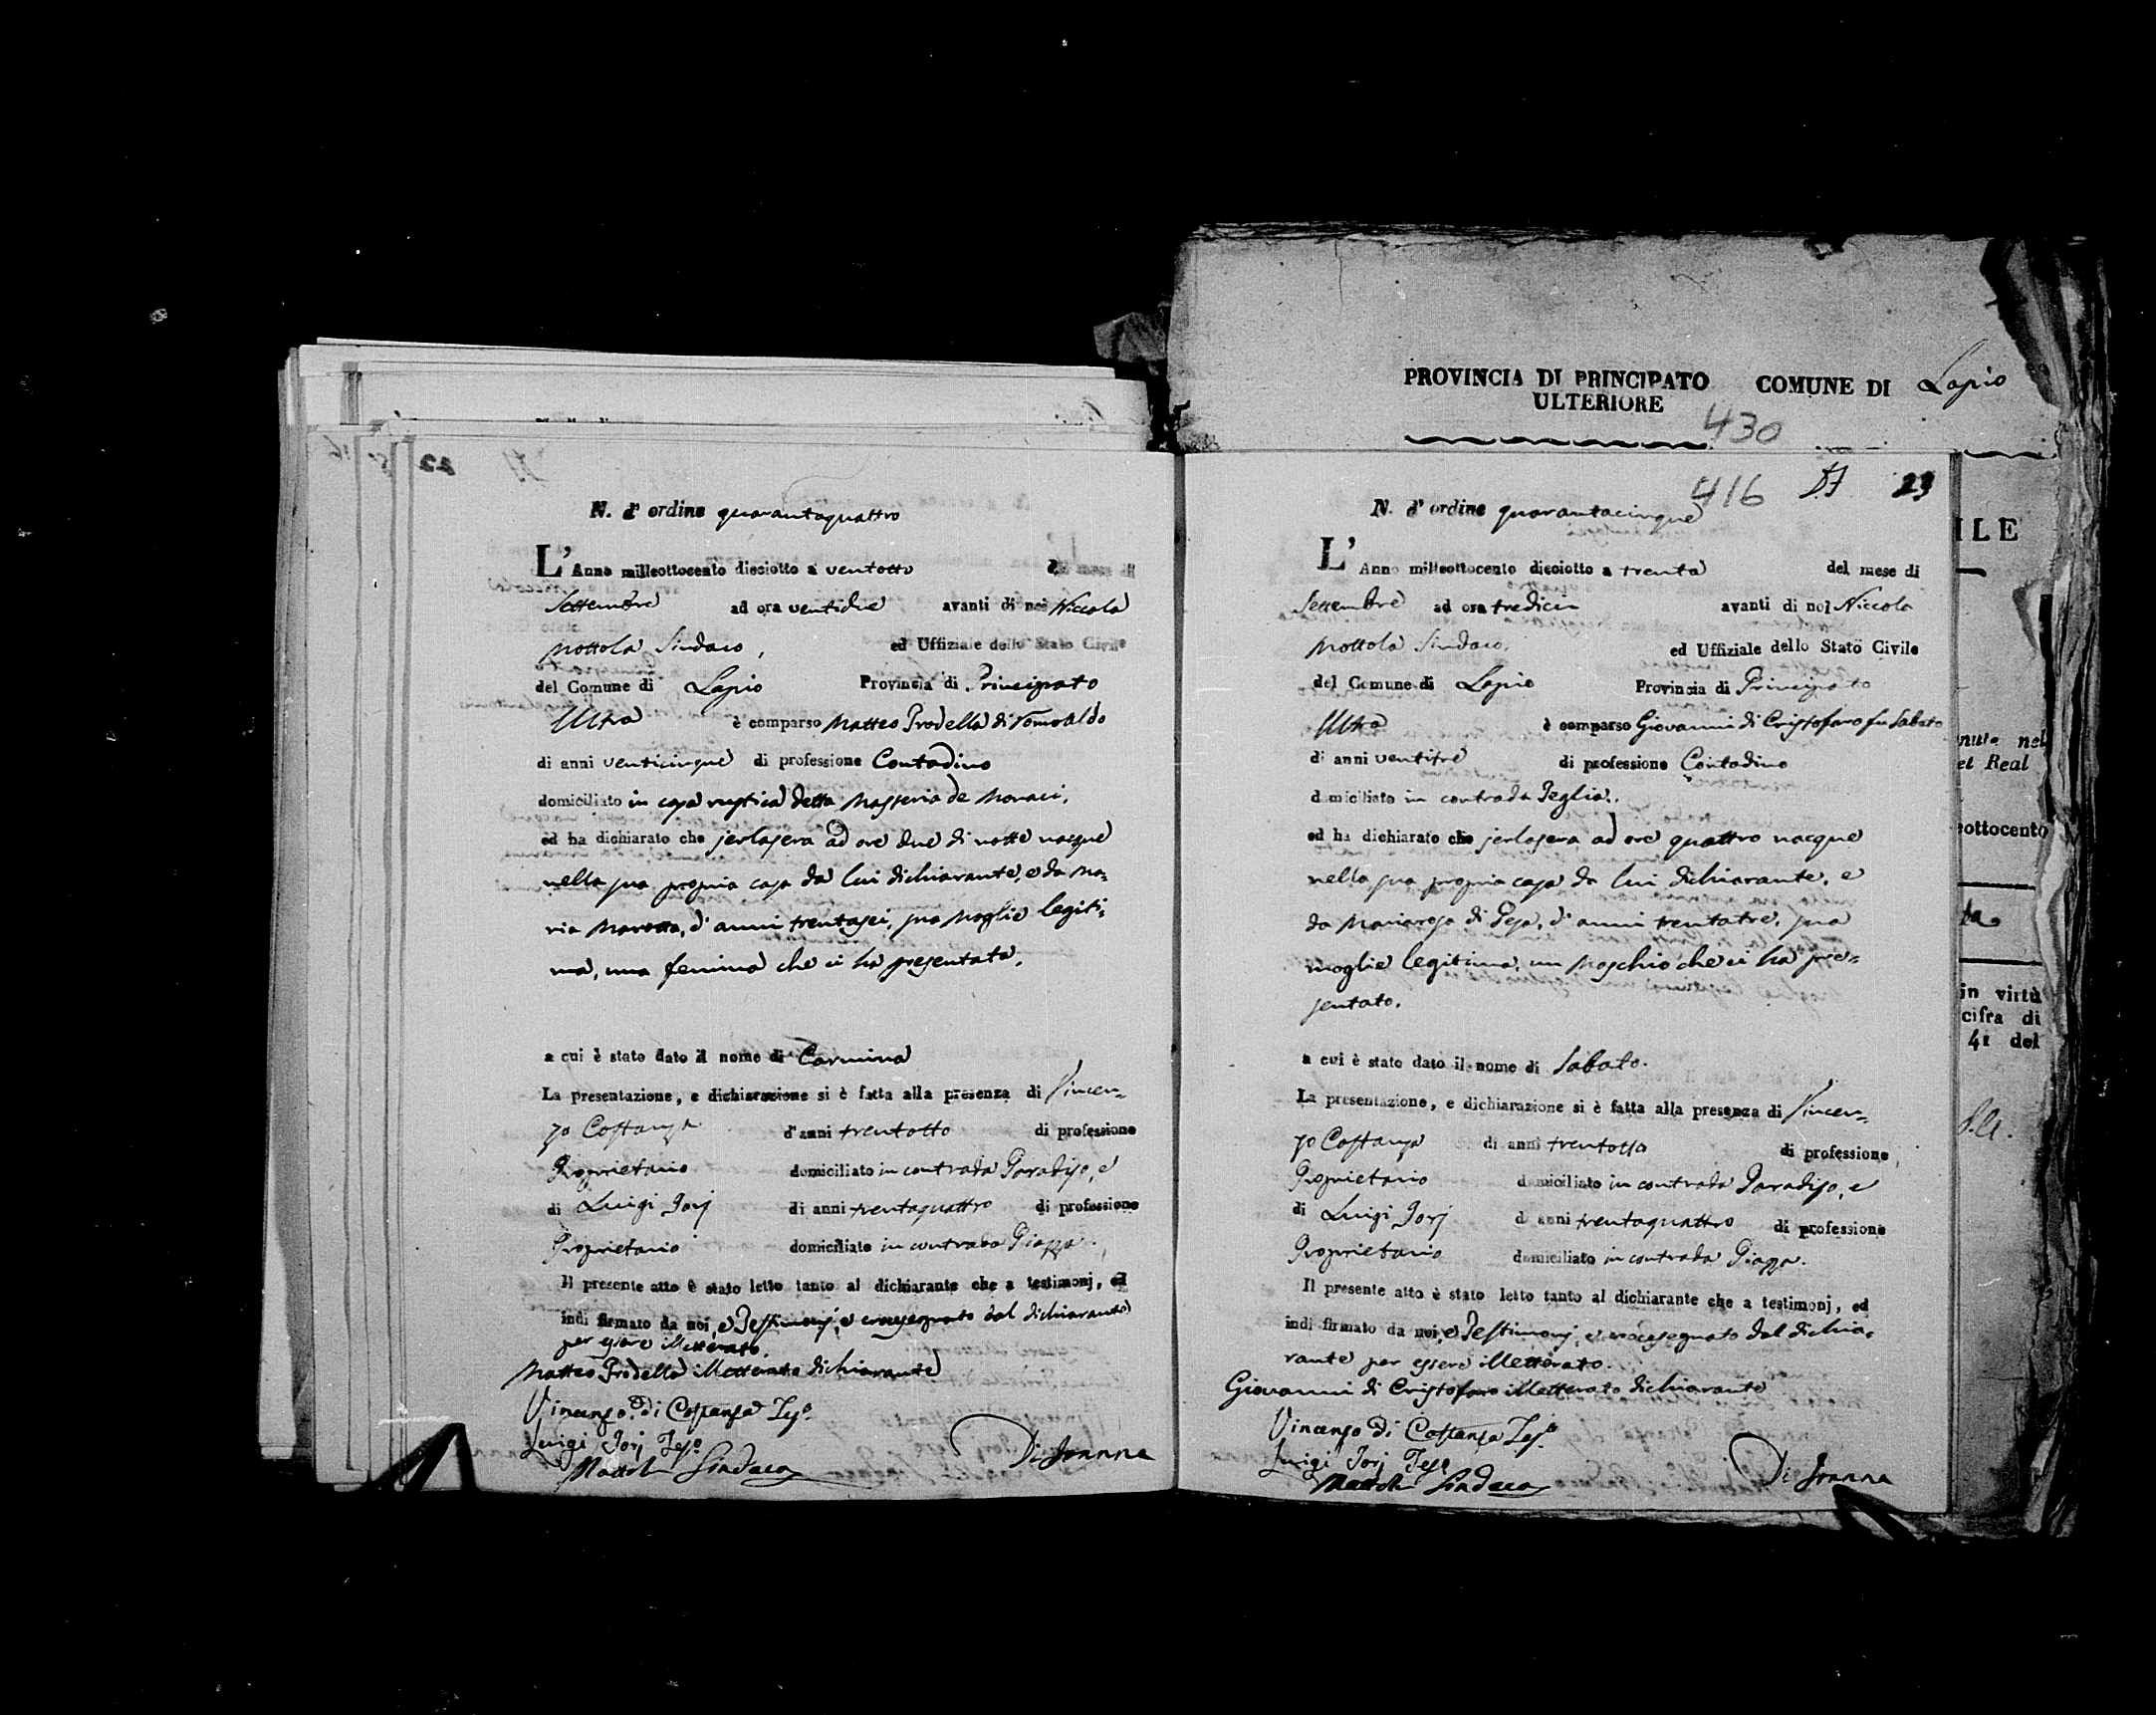 N. d' ordine quarantaquattro
L' Anno milleottocento dieciotto a ventotto del mese di
Settembre ad ora ventidue avanti di noi Niccola
Mottola Sindaco, ed Uffiziale dello Stato Civile
del Comune di Lapio Provincia di Principato
Ultra è comparso Matteo Prodella di Romoaldo
di anni venticinque di professione Contadino
domiciliato in casa rustica detta Masseria de Monaci,
ed ha dichiarato che jerlasera ad ore due di notte nacque
nella sua propria casa da lui dichiarante, e da Ma-
ria Marotta, d' anni trentasei, sua moglie legiti-
ma, una femina che ci ha presentata,
a cui è stato dato il nome di Carmina
La presentazione, e dichiarazione si è fatta alla presenza di Vincen-
zo Costanza d'anni trentotto di professione
Proprietario domiciliato in contrada Paradiso, e
di Luigi Jorj di anni trentaquattro di professione
Proprietario domiciliato in contrada Piazza.
Il presente atto è stato letto tanto al dichiarante che a testimonj, ed
indi firmato da noi, e Testimonj, e crocesegnato dal dichiarante
per essere illetterato.
Matteo Prodella illetterato dichiarante
Vincenzo di Costanza Tes.º
Luigi Jorj Tes.º
Mottola Sindaco
Di Joanna
PROVINCIA DI PRINCIPATO ULTERIORE COMUNE DI Lapio
430
416 23
N. d' ordine quarantacinque
L' Anno milleottocento dieciotto a trenta del mese di
Settembre ad ora tredici avanti di noi Niccola
Mottola Sindaco, ed Uffiziale dello Stato Civile
del Comune di Lapio Provincia di Principato
Ultra è comparso Giovanni di Cristofaro fu Sabato
di anni ventitre di professione Contadino
domiciliato in contrada Teglia.
ed ha dichiarato che jerlasera ad ore quattro nacque
nella sua propria casa da lui dichiarante, e
da Mariarosa di Pesa, d' anni trentatre, sua
moglie legitima, un maschio che ci ha pre-
sentato,
a cui è stato dato il nome di Sabato.
La presentazione, e dichiarazione si è fatta alla presenza di Vincen-
zo Costanza di anni trentotto di professione
Proprietario domiciliato in contrada Paradiso, e
di Luigi Jorj d' anni trentaquattro di professione
Proprietario domiciliato in contrada Piazza.
Il presente atto è stato letto tanto al dichiarante che a testimonj, ed
indi firmato da noi, e Testimonj, e crocesegnato dal dichia-
rante per essere illetterato.
Giovanni di Cristofaro illetterato dichiarante
Vincenzo di Costanza Tes.º
Luigi Jorj Tes.º
Mottola Sindaco
Di Joanna
ILE
nel
et Real
eottocento
in virtù
cifra di
41 del